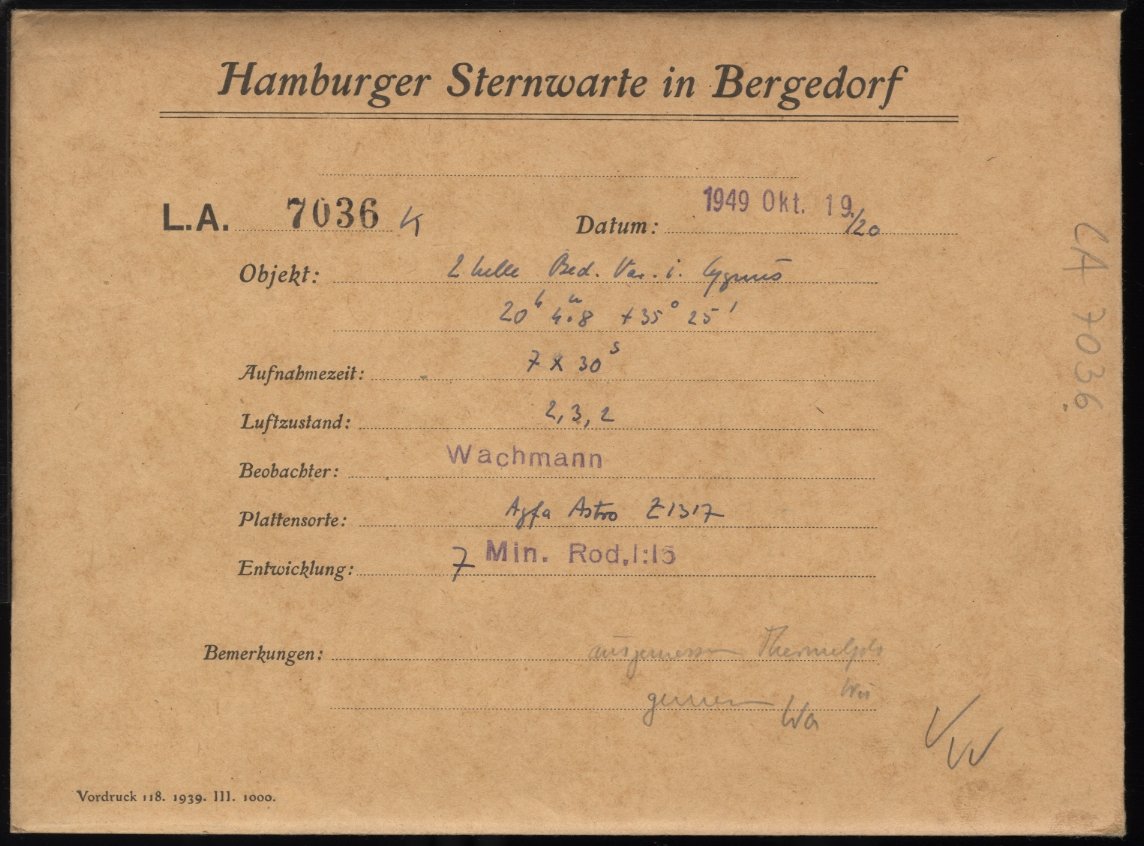 Hamburger Sternwarte in Bergedorf
L.A. 7036 K
Datum: 1949 Okt. 19./20
Objekt: 2 helle Bed. Var. i. Cygnus
20h 4m.8 +35° 25'
Aufnahmezeit: 7 x 30s
Luftzustand: 2, 3, 2
Beobachter: Wachmann
Plattensorte: Agfa Astro Z1317
Entwicklung: 7 Min. Rod. 1:15
Bemerkungen: ausgemessen
Wa
Vordruck 118. 1939. III. 1000.
LA 7036.